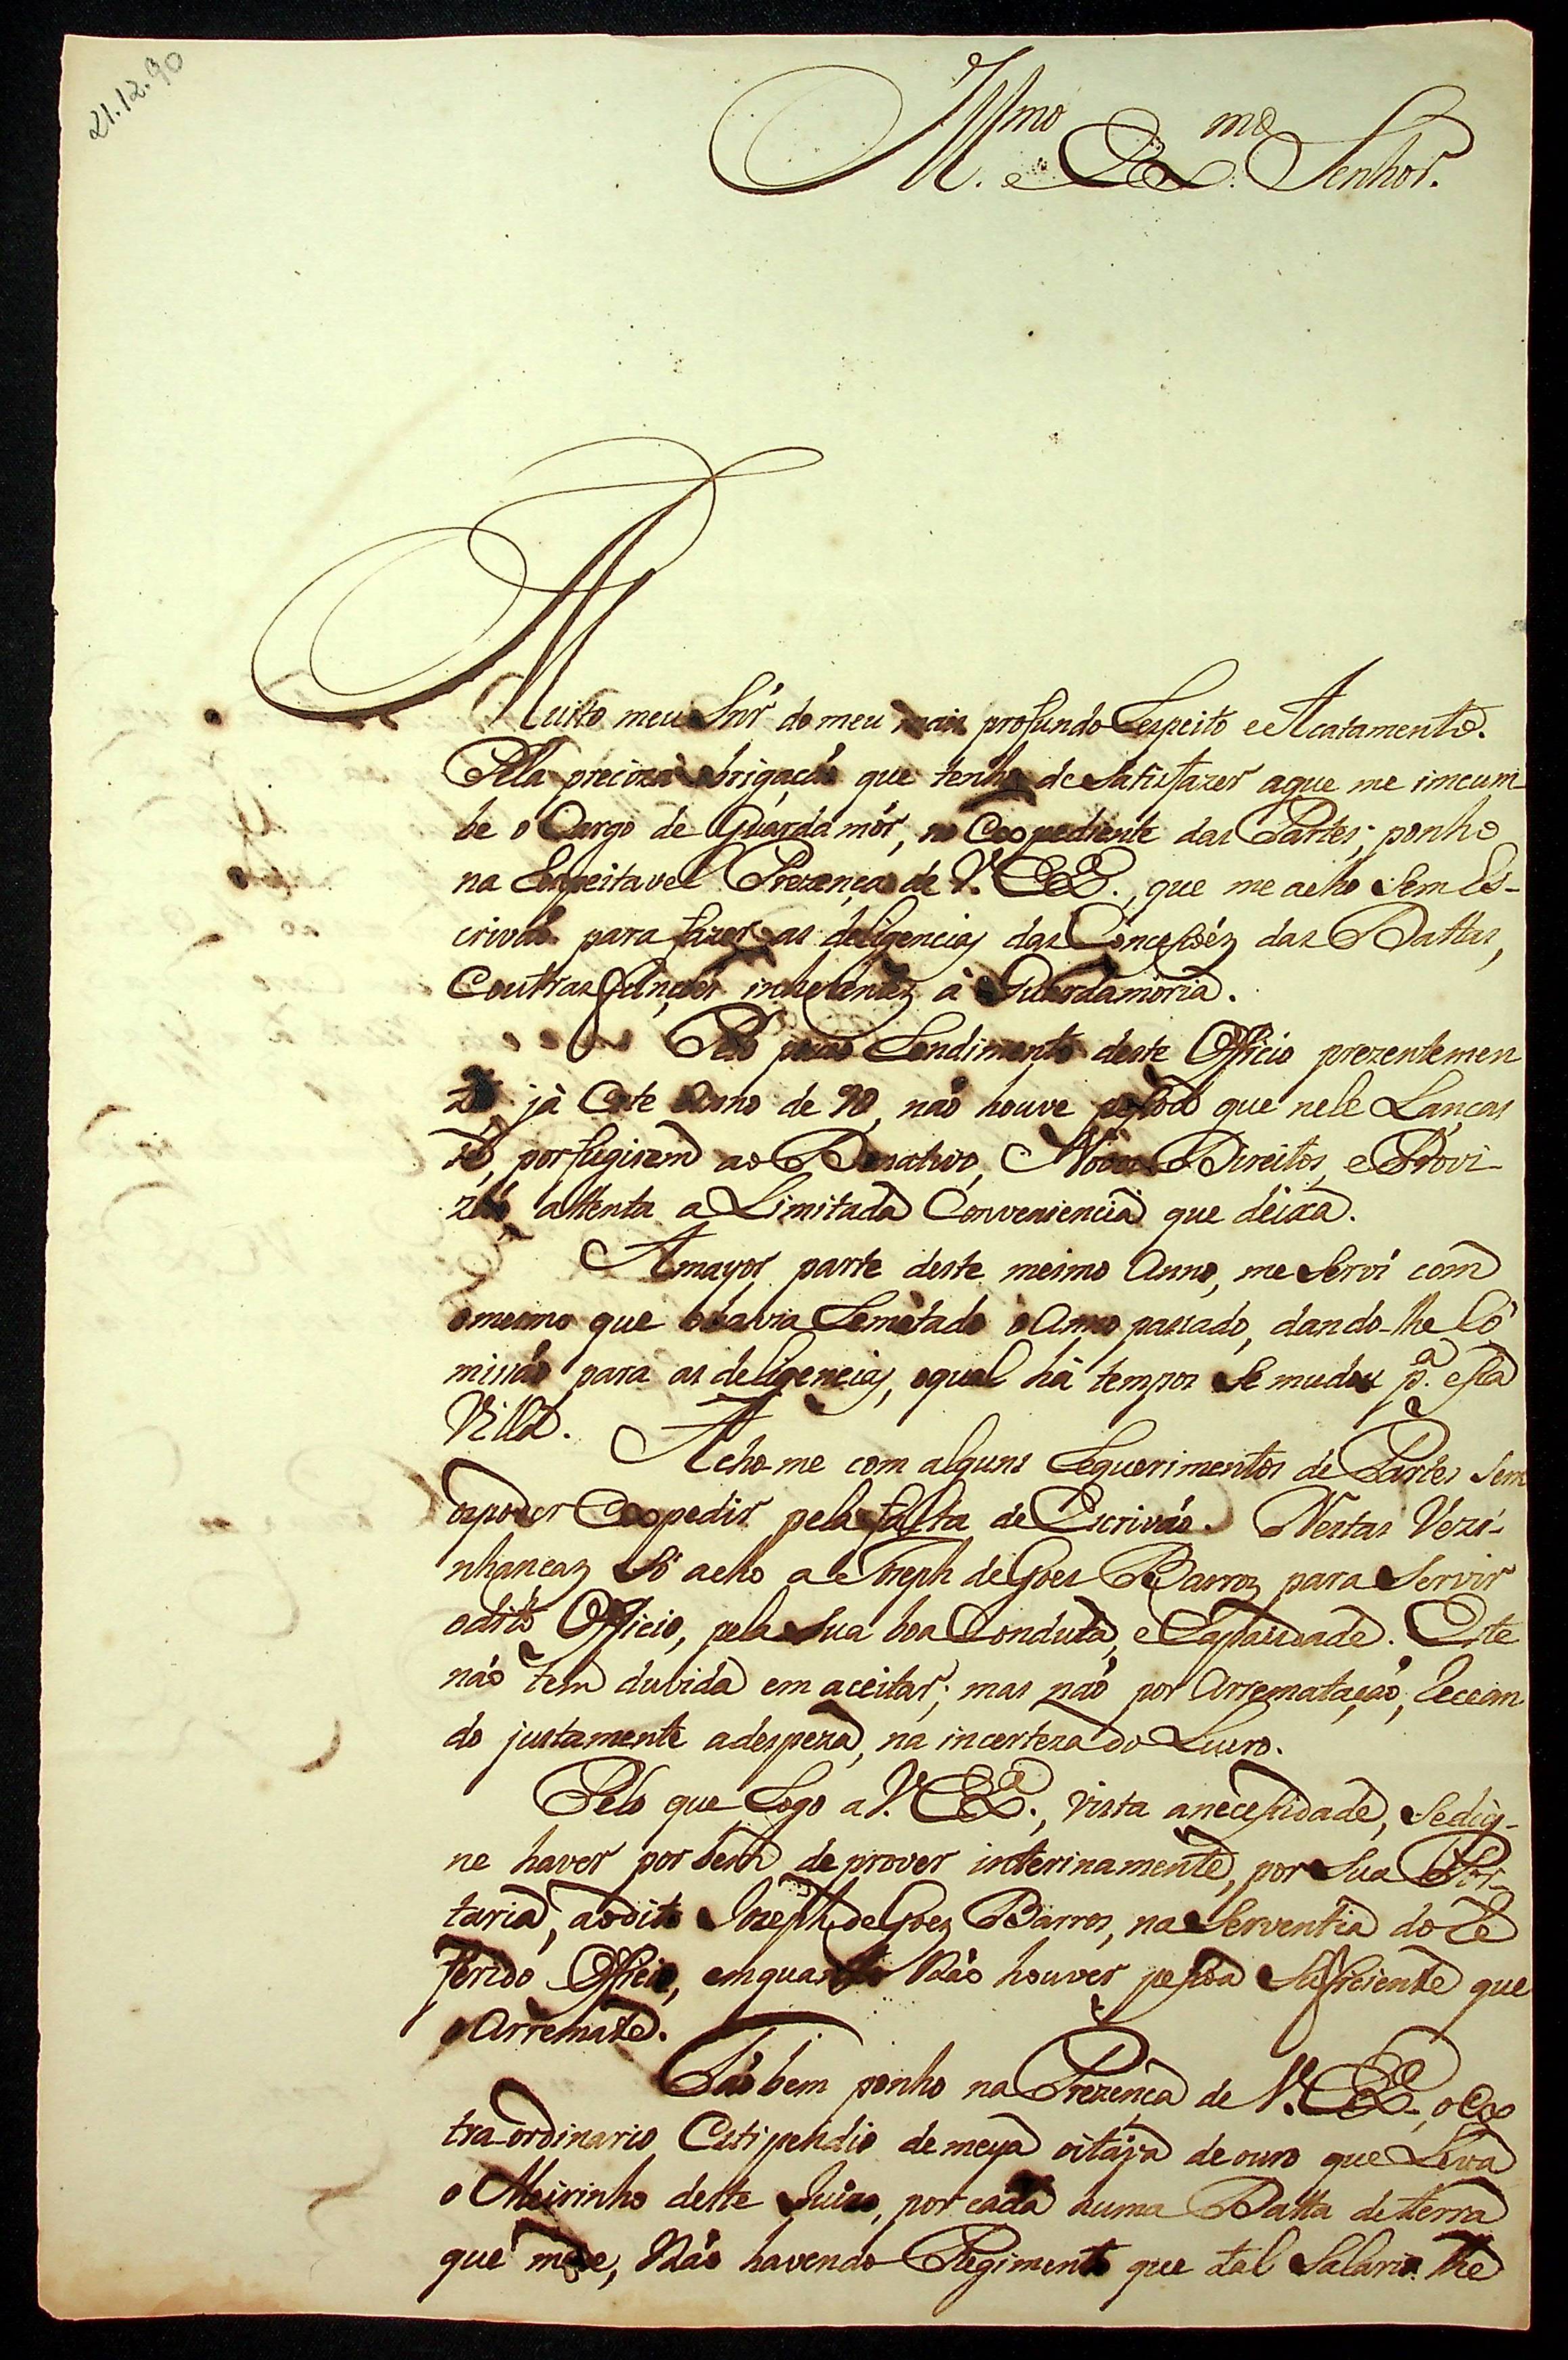 21.12.90
Illmo. e Exmo. Senhor.
Muito meu Snr' do meu mais profundo Respeito e Acatamento.
Pela preciza obrigação que tenho de Satisfazer aque me imcum-
be o Cargo de Guarda mór, no Expediente das Partes; ponho
na Respeitavel Prezença de V. Exª., que me acho Sem Es-
crivão para fazer as deligencias das Concessoẽz das Dattas,
E outras funçoẽs inherentez à Guardamoria.
Pelo pouco Rendimento deste Officio prezentemen
te, já Este Anno de 90, não houve pessoa que nele Lanças
se, por fugirem ao Donativo, Novos Direitos, e Provi
zão attenta a Limitada Conveniencia que deixa.
A mayor parte deste mesmo Anno, me Servi com
o mesmo que o havia Remetado o Anno passado, dando-lhe Co
missão para as deligencias, o qual há tempos Se mudou pª. essa
Villa.
Acho-me com alguns Requerimentos de Partes Sem
os poder Expedir pela falta de Escrivão. Nestas Vezi-
nhancaz Só acho a Joseph de Goes Barroz para Servir
o dito Officio, pela Sua boa Conduta, e Capacidade. Este
não tem duvida em aceitar; mas não por Arrematação, Recean
do justamente a despeza, na incerteza do Lucro.
Pelo que Rogo a V. Exª., vista a necessidade, Se dig-
ne haver por bem de prover interinamente, por Sua Por-
taria, ao dito Jozeph de Goez Barros, na Serventia do Re
ferido Officio, emquanto Não houver pessoa Sufficiente que
o Arremate.
Tão bem ponho na Prezenca de V. Exª., o Ex
tra-ordinario Estipendio de meya oitava de ouro que Leva
o Meirinho deste Juizo, por cada huma Datta de terra
que mede, Não havendo Regimento que tal Salario lhe